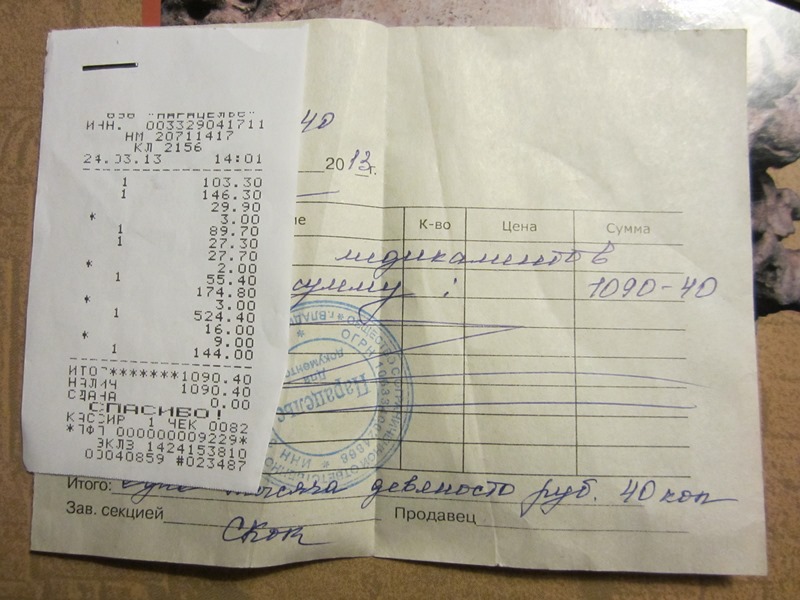 ООО "ПАРАЦЕЛЬС"
ИНН. 003329041711
НМ 20711417
КЛ 2156
24.03.13 14:01
1 103.30
1 146.30
29.90
* 3.00
1 89.70
1 27.30
27.70
* 2.00
1 55.40
174.80
* 3.00
1 524.40
16.00
* 9.00
1 144.00
ИТОГ*******1090.40
НАЛИЧ 1090.40
СДАЧА 0.00
СПАСИБО!
КАССИР 1 ЧЕК 0082
*ПФП 000000009229*
ЭКЛЗ 1424153810
00040859 #023487
40
2013 г.
ие К-во Цена Сумма
медикаментов
сумму : 1090-40
Парацельс
Для
документов
Итого: Одна тысяча девяносто руб. 40 коп
Зав. секцией Продавец